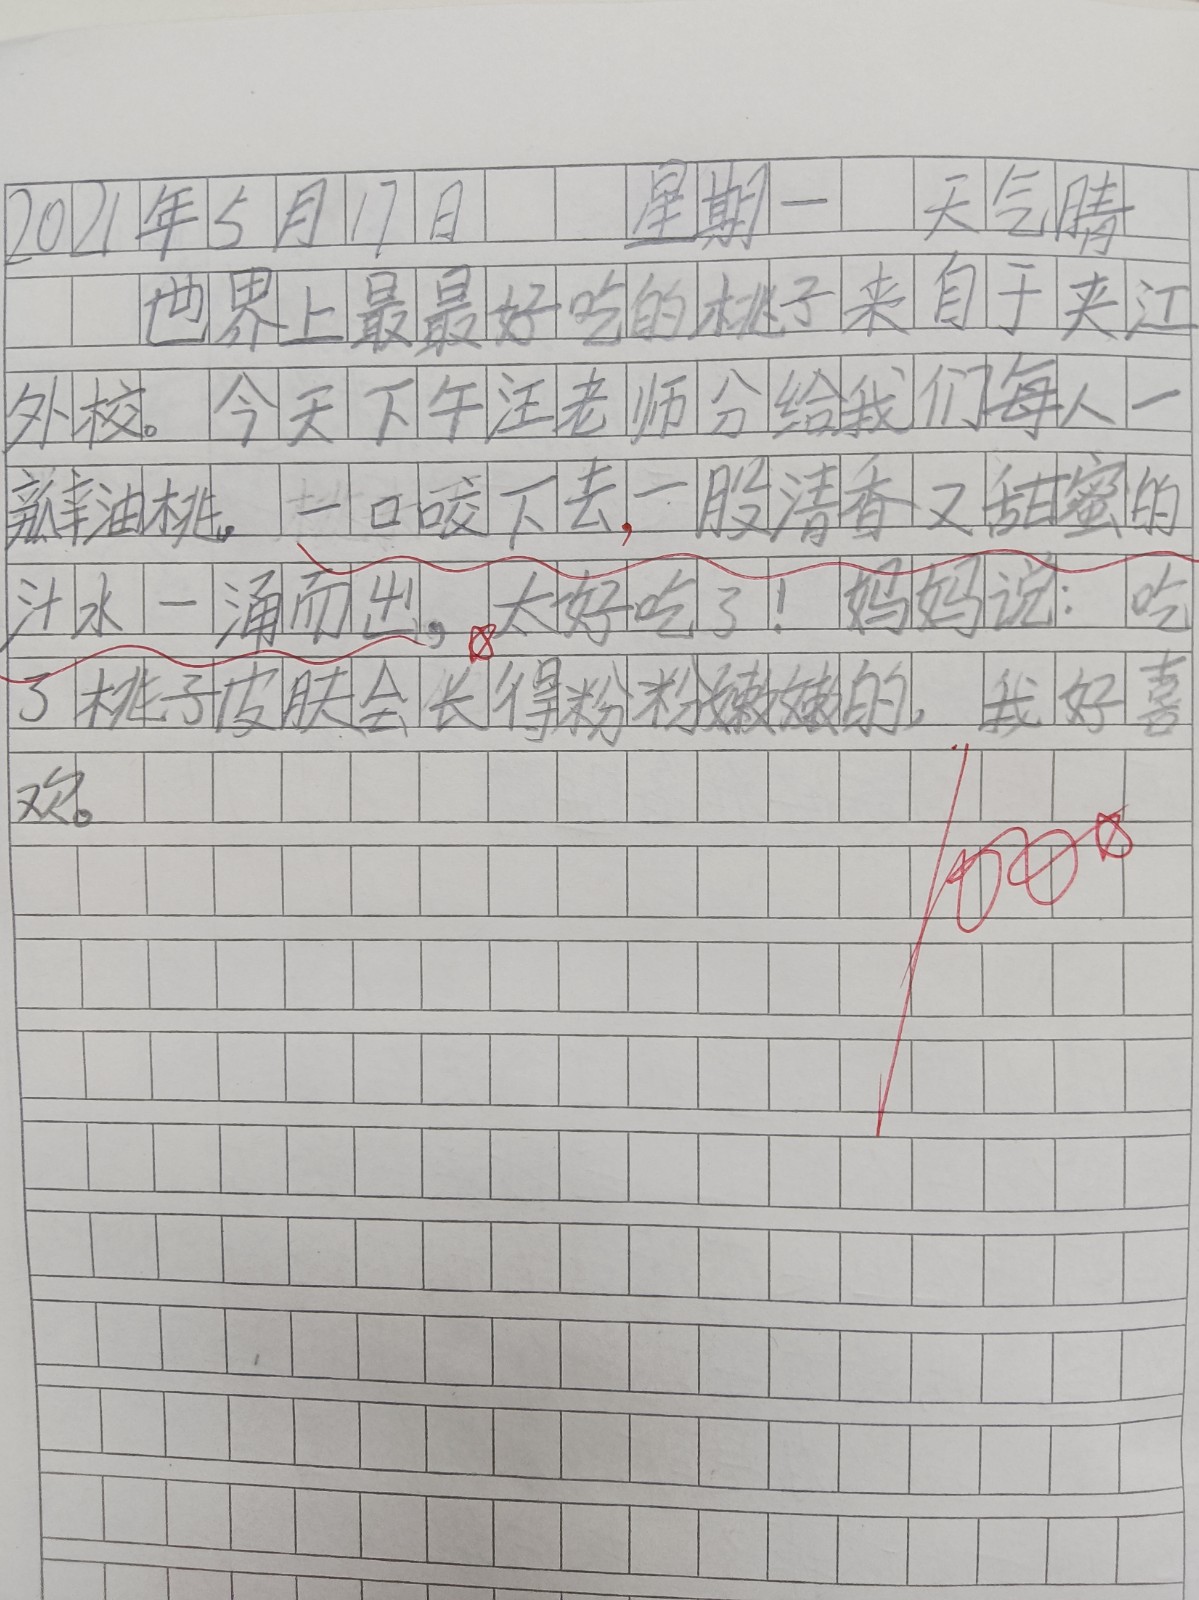 2021年5月17日 星期一 天气晴
世界上最最好吃的桃子来自于夹江
外校。今天下午汪老师分给我们每人一
瓣油桃。一口咬下去,一股清香又甜蜜的
汁水一涌而出。太好吃了!妈妈说:吃
了桃子皮肤会长得粉粉嫩嫩的,我好喜
欢。
100